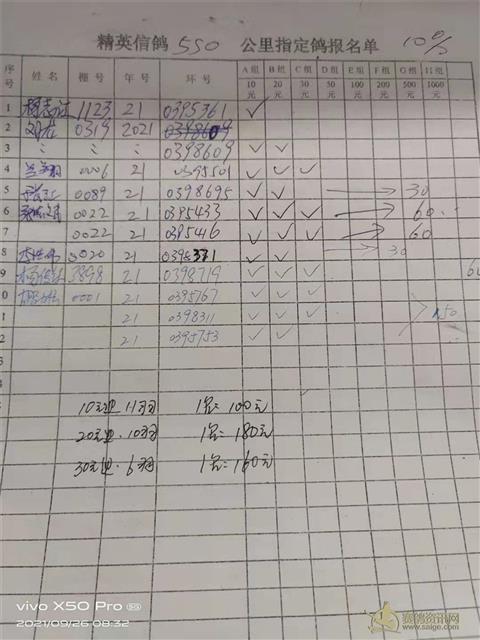 精英信鸽 550 公里指定鸽报名单 10%
序号 姓名 棚号 年号 环号 A组 10元 B组 20元 C组 30元 D组 50元 E组 100元 F组 200元 G组 500元 H组 1000元
1 1123 21 0395361 ✓
2 0319 2021
3 0398609 ✓ ✓
4 0006 21 0395501 ✓ ✓ ✓
5 0089 21 0398695 ✓ ✓ → 30
6 0022 21 0395433 ✓ ✓ ✓ → 60
7 0022 21 0395416 ✓ ✓ ✓ → 60
8 0020 21 ✓ ✓ → 30
9 3898 21 0398719 ✓ ✓ ✓
0 0001 21 0395767 ✓ ✓ ✓
1 21 0398311 ✓ ✓ ✓
2 21 0395753 ✓ ✓
10元 11羽 1名: 100元
20元 10羽 1名: 180元
30元 6羽 1名: 160元
vivo X50 Pro 5G
2021/09/26 08:32
赛鸽资讯网
www.saige.com